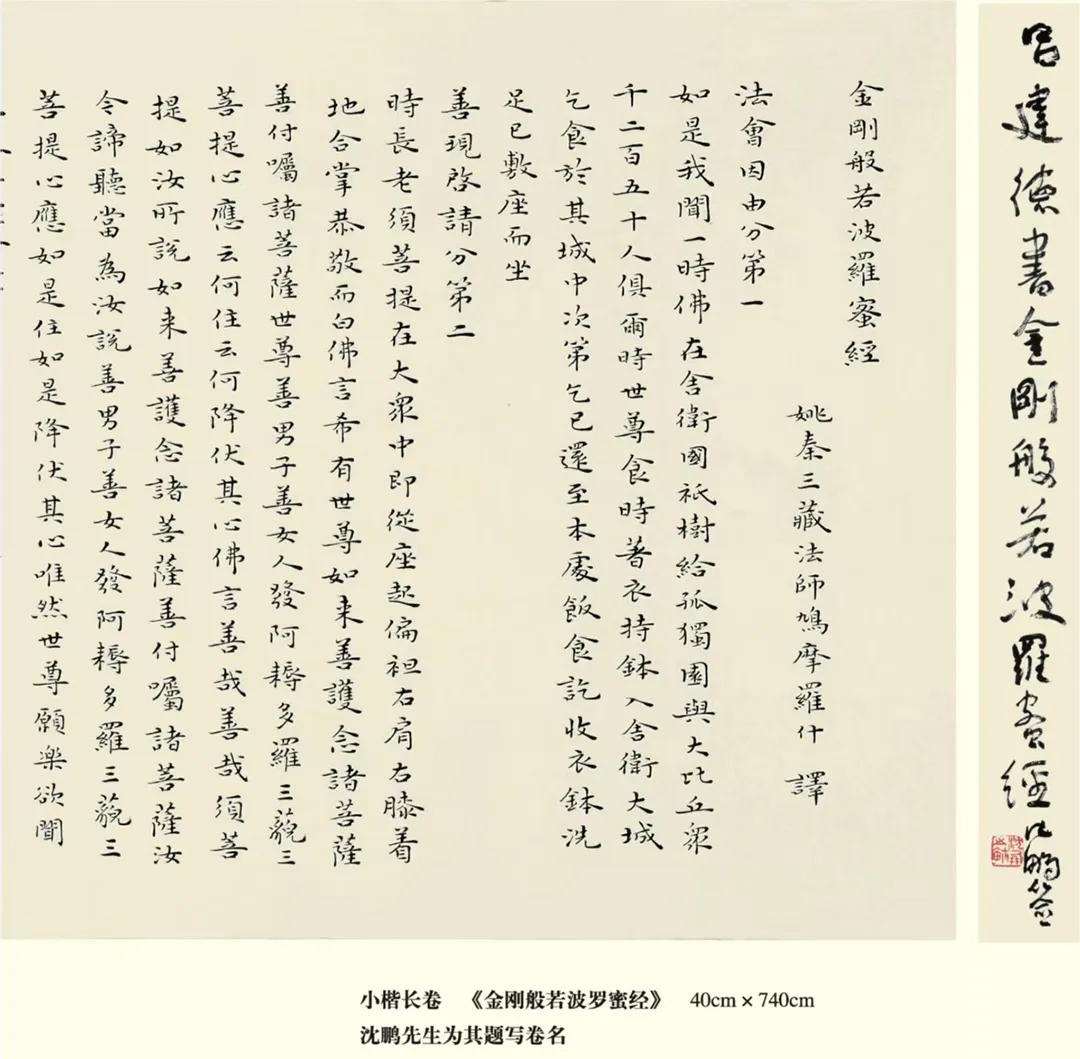 呂建德書金剛般若波羅蜜經
沈鵬签
金剛般若波羅蜜經
姚秦三藏法師鳩摩羅什 譯
法會因由分第一
如是我聞一時佛在舍衛國祇樹給孤獨園與大比丘眾
千二百五十人俱爾時世尊食時著衣持鉢入舍衛大城
乞食於其城中次第乞已還至本處飯食訖收衣鉢洗
足已敷座而坐
善現啓請分第二
時長老須菩提在大眾中即從座起偏袒右肩右膝着
地合掌恭敬而白佛言希有世尊如来善護念諸菩薩
善付囑諸菩薩世尊善男子善女人發阿耨多羅三藐三
菩提心應云何住云何降伏其心佛言善哉善哉須菩
提如汝所說如来善護念諸菩薩善付囑諸菩薩汝
令諦聽當為汝說善男子善女人發阿耨多羅三藐三
菩提心應如是住如是降伏其心唯然世尊願楽欲聞
小楷长卷 《金刚般若波罗蜜经》 40cm × 740cm
沈鹏先生为其题写卷名